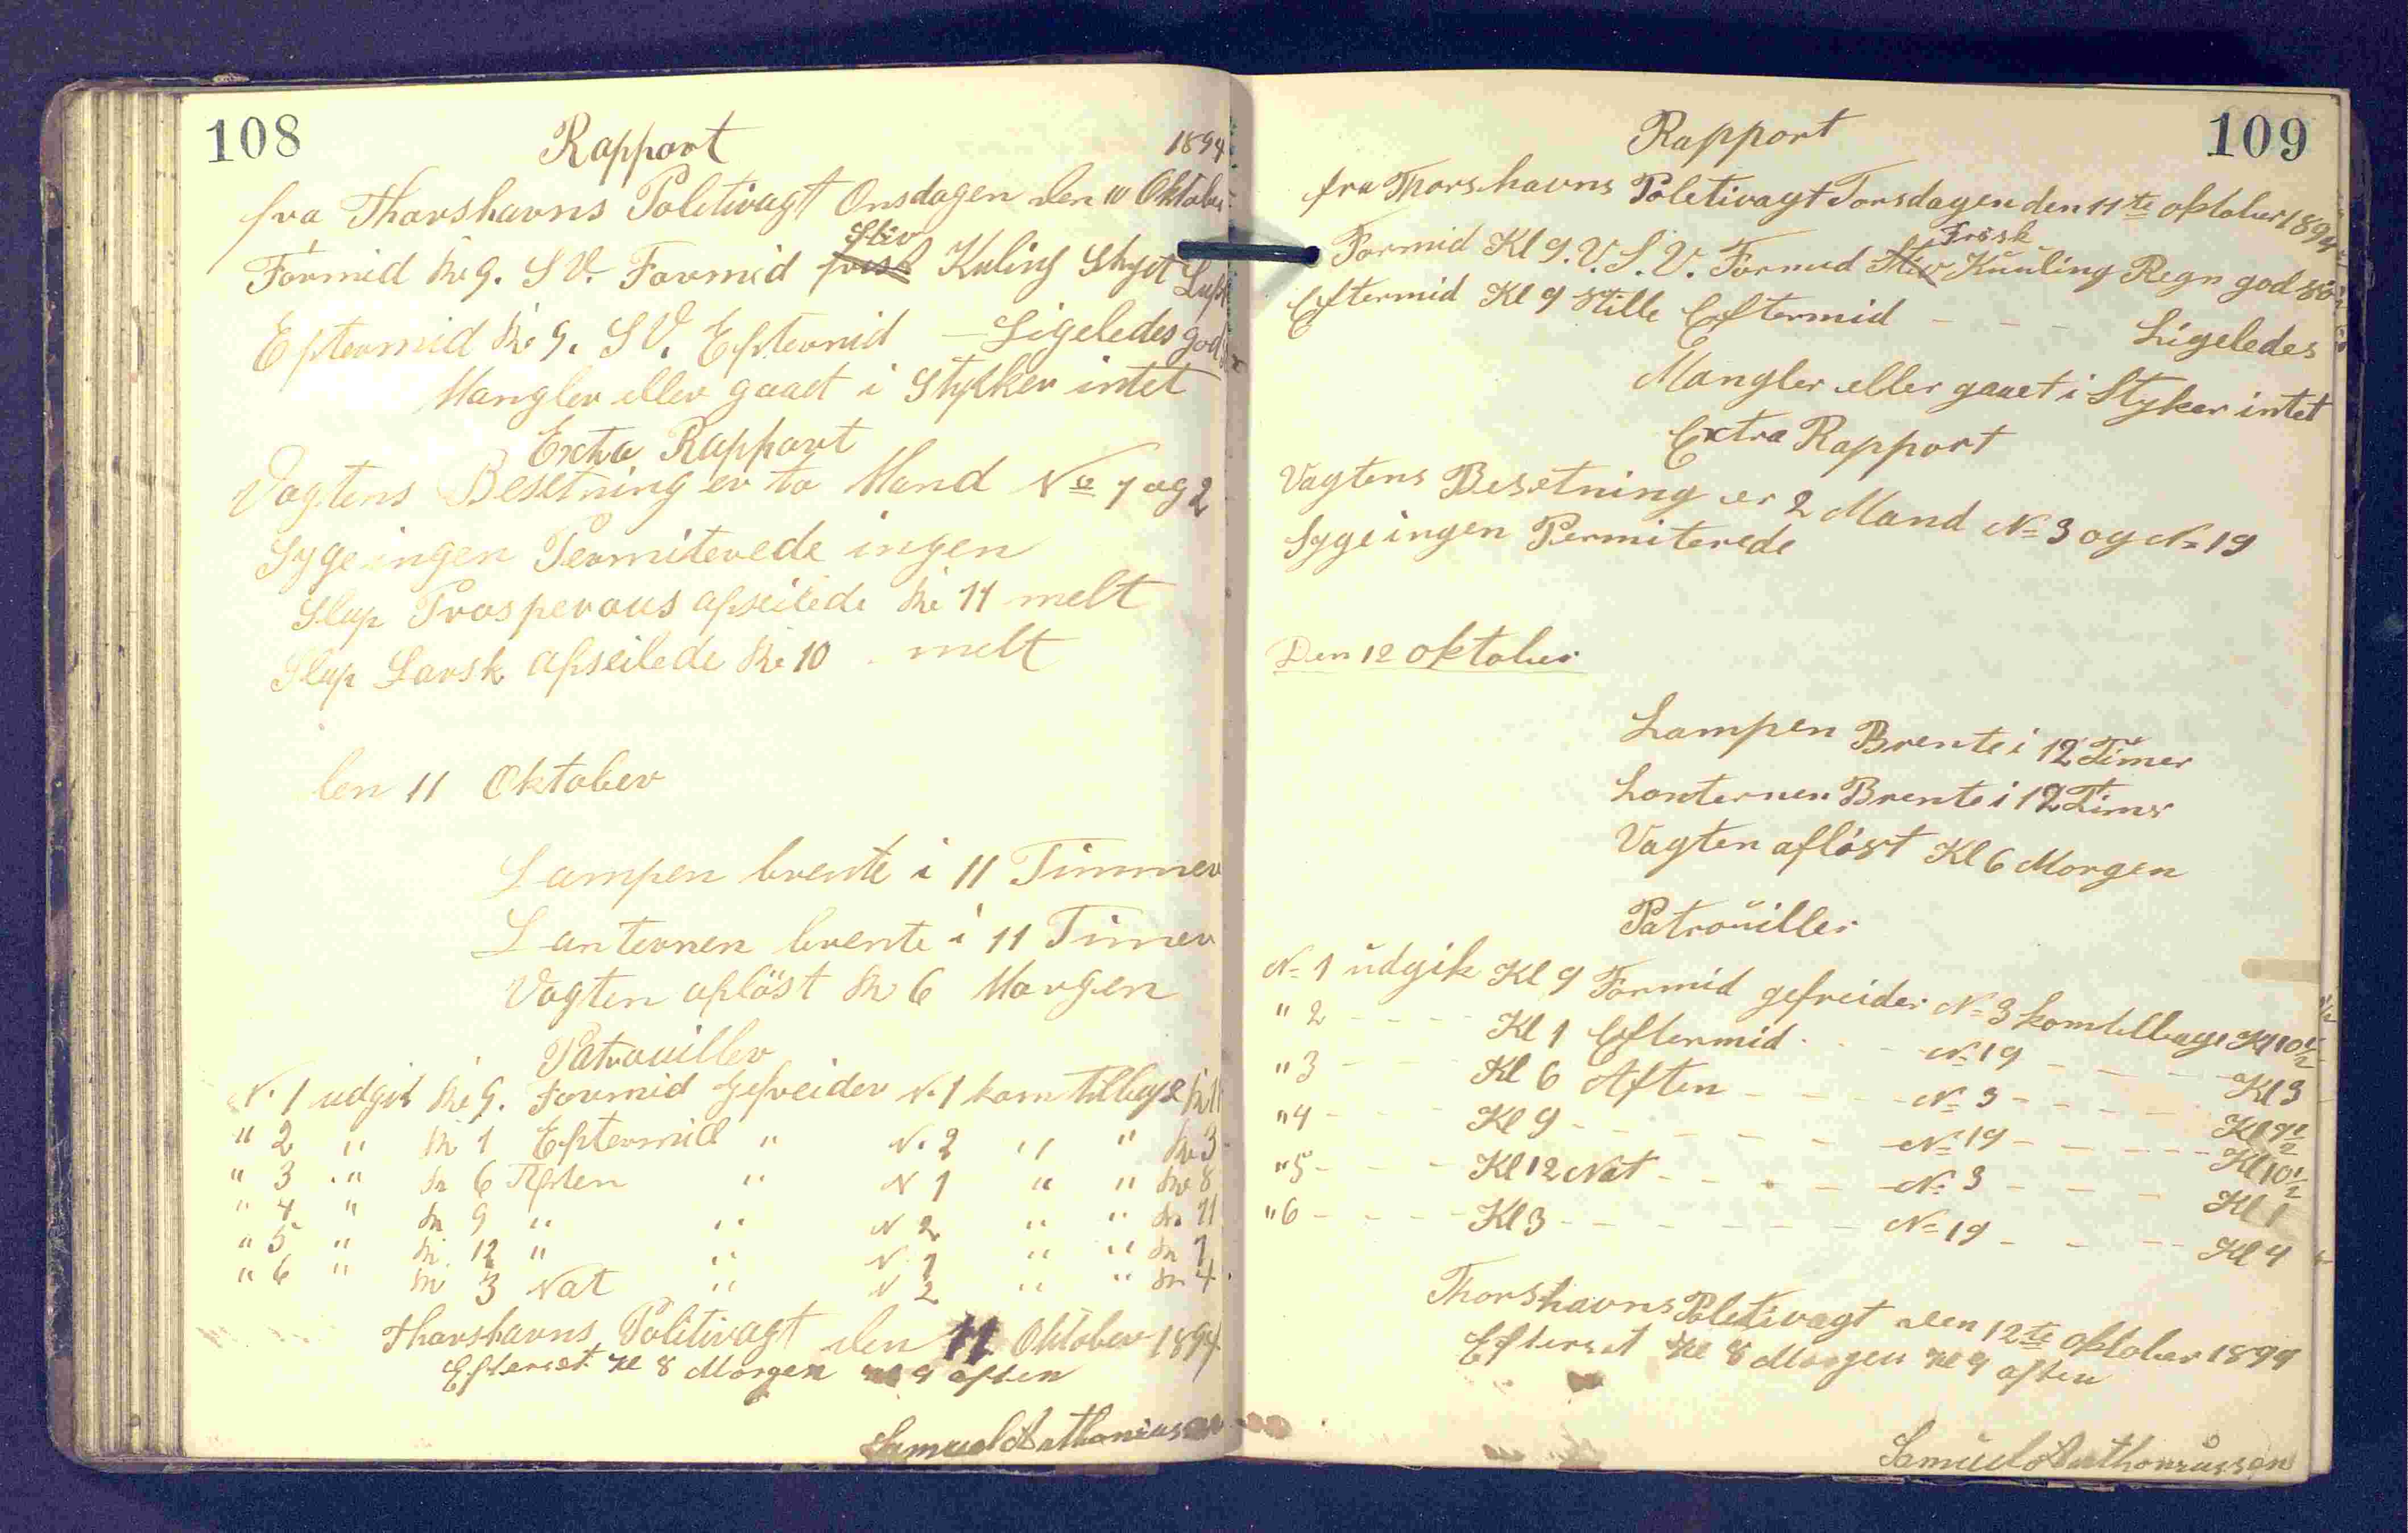 108
Rapport
1894
fra Thorshavns Politivagt Onsdagen den 10 Oktober
Stiv
Formid Kl 9. S V. Formid frisk Kuling Skyet Luft
Eftermid Kl 9. S V. Eftermid — Ligeledes god
Mangler eller gaaet i Stykker intet
Extra Rapport
Vagtens Besetning er to Mand No 1 og 2
Syge ingen Permiterede ingen
Slup Prosperous afseilede Kl 11 melt
Slup Larsk afseilede Kl 10 melt
den 11 Oktober
Lampen brente i 11 Timmer
Lanternen brente i 11 Timer
Vagten aflöst Kl 6 Morgen
Patrouiller
N. 1 udgik Kl 9. Formid gefreider N. 1 kom tilbage Kl 11
" 2 " Kl 1 Eftermid " N. 2 " " Kl 3
" 3 " Kl 6 Aften " N 1 " " Kl 8
" 4 " Kl 9 " " N 2 " " Kl 11
" 5 " Kl 12 " " N. 1 " " Kl 1
" 6 " Kl 3 Nat " N 2 " " Kl 4
Thorshavns Politivagt den 11 Oktober 1894
Efterset Kl 8 Morgen Kl 9 aften
Samuel Anthoniussen
109
Rapport
fra Thorshavns Poletivagt Torsdagen den 11te oktober 1894
Frosk
Formid Kl 9. V. S. V. Formid Stiv Kuuling Regn god
Eftermid Kl 9 Stille Eftermid - - - Ligeledes
Mangler eller gaaet i Styker intet
Extra Rapport
Vagtens Besetning er 2 Mand N= 3 og N= 19
Syge ingen Permiterede
Den 12 oktober
Lampen Brente i 12 Timer
Lanternen Brente i 12 Timer
Vagten aflöst Kl 6 Morgen
Patrouiller
N= 1 udgik Kl 9 Formid gefreider N= 3 kom tilbage Kl 10 1/2
" 2 - - - - Kl 1 Eftermid - - - N= 19 - - - - Kl 3
" 3 - - - Kl 6 Aften - - - - N= 3 - - - - Kl 7 1/2
" 4 - - - - Kl 9 - - - - - - N= 19 - - - - Kl 10 1/2
" 5 - - - Kl 12 Nat - - - - N= 3 - - - - Kl 1
" 6 - - - - Kl 3 - - - - - - N= 19 - - - - Kl 4
Thorshavns Poletivagt den 12te oktober 1894
Efterset Kl 8 Morgen Kl 9 aften
Samuel Anthoniussen